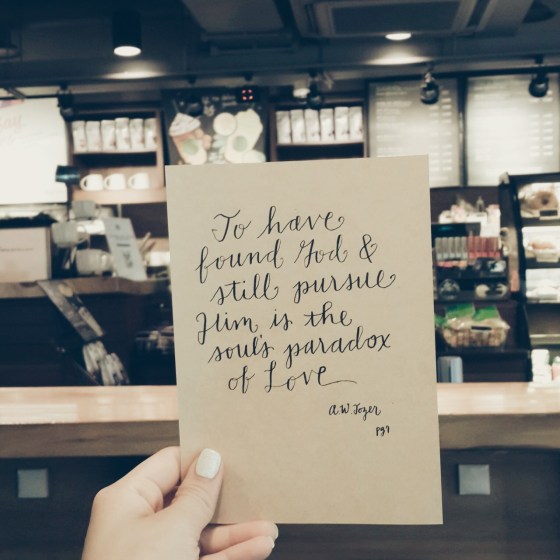 To have
found God &
still pursue
Him is the
soul's paradox
of Love
A.W. Tozer
pg 7